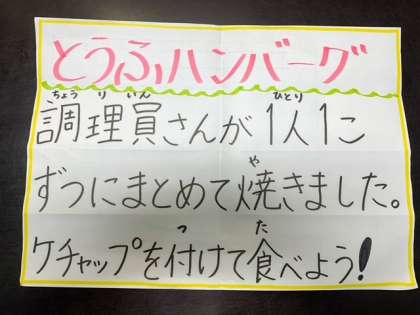 とうふハンバーグ
ちょうりいん ひとり
調理員さんが1人1こ
や
ずつにまとめて焼きました。
つ た
ケチャップを付けて食べよう!